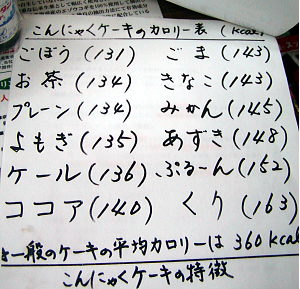 こんにゃくケーキのカロリー表 (kcal)
ごぼう (131) ごま (143)
お茶 (134) きなこ (143)
プレーン (134) みかん (145)
よもぎ (135) あずき (148)
ケール (136) ぷるーん (152)
ココア (140) くり (163)
一般のケーキの平均カロリーは 360 kcal
こんにゃくケーキの特徴